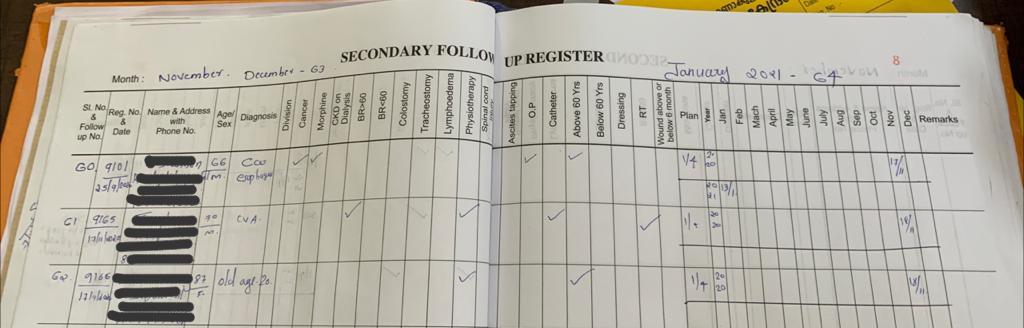 SECONDARY FOLLOW UP REGISTER
8
Month : November. December - 63 January 2021 - 64
Sl. No. & Follow up No. Reg. No. & Date Name & Address with Phone No. Age/ Sex Diagnosis Division Cancer Morphine CKD on Dialysis BR>60 BR<60 Colostomy Tracheostomy Lymphoedema Physiotherapy Spinal cord Ascites tapping O.P Catheter Above 60 Yrs Below 60 Yrs Dressing RT Wound above or below 6 month Plan Year Jan Feb Mach April May June July Aug Sep Oct Nov Dec Remarks
60 9101 66 Ca ✓ ✓ ✓ ✓ 1/4 20 17/
25/9/ m. esophagus 20 11
20 13/1
21
61 9165 70 CVA. ✓ ✓ ✓ ✓ 20 18/
17/11/2020 m. 20 11
62 9166 87 old age. ✓ ✓ 1/4 20 18/
17/11/ F. 20 11